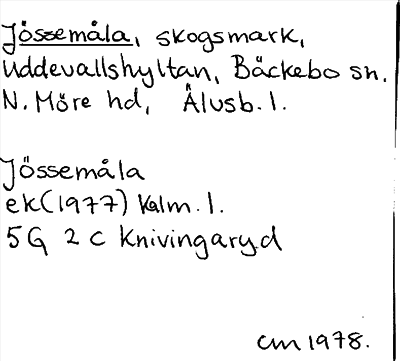 Jössemåla, skogsmark,
Uddevallshyltan, Bäckebo sn.
N. Möre hd, Ålusb. l.
Jössemåla
ek(1977) Kalm. l.
5G 2 c Knivingaryd
cm 1978.